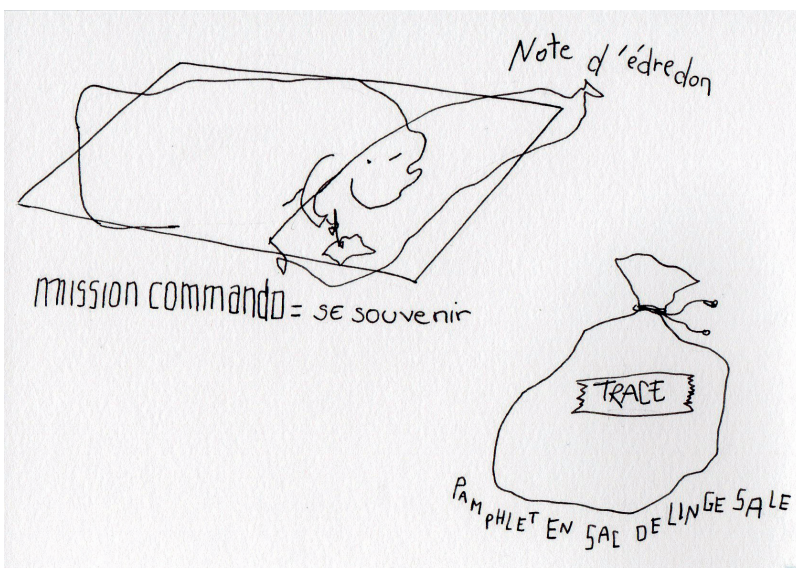 Note d'édredon
mission commando = se souvenir
TRACE
PAMPHLET EN SAC DE LINGE SALE